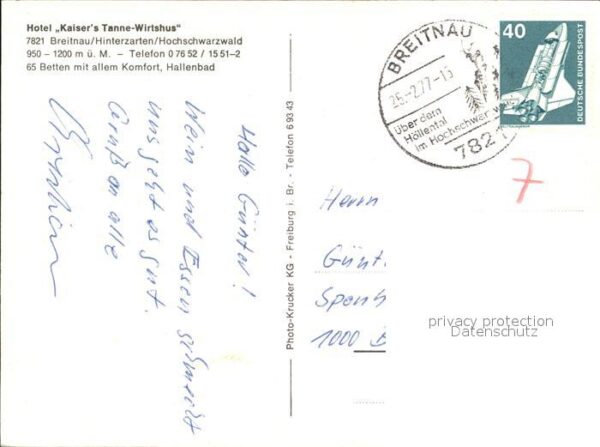 Hotel „Kaiser's Tanne-Wirtshus"
7821 Breitnau/Hinterzarten/Hochschwarzwald
950 – 1200 m ü. M. – Telefon 0 76 52 / 15 51–2
65 Betten mit allem Komfort, Hallenbad
Hallo Günter!
Wein und Essen schmeckt
uns geht es gut.
Gruß an alle
Photo-Krucker KG - Freiburg i. Br. - Telefon 6 93 43
BREITNAU
25.-2.77-15
Über dem
Höllental
im Hochschwarzwald
782
40
DEUTSCHE BUNDESPOST
7
Herrn
Günt
1000 B
privacy protection
Datenschutz